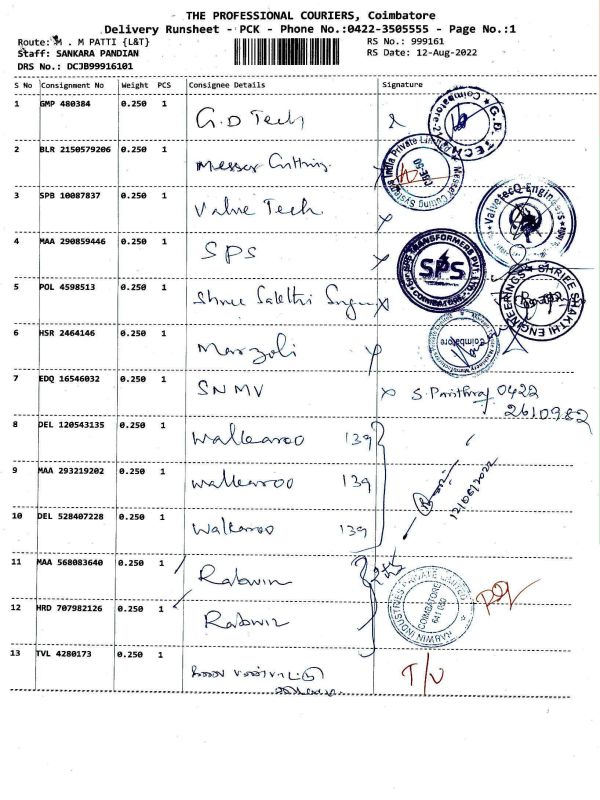 THE PROFESSIONAL COURIERS, Coimbatore
Delivery Runsheet - PCK - Phone No.:0422-3505555 - Page No.:1
Route: M . M PATTI {L&T} RS No.: 999161
Staff: SANKARA PANDIAN RS Date: 12-Aug-2022
DRS No.: DCJB99916101
S No Consignment No Weight PCS Consignee Details Signature
1 GMP 480384 0.250 1 G.D Tech
COIMBATORE-21 G.D. TECH
2 BLR 2150579206 0.250 1 Messer Cutting
Messer Cutting Systems India Private Limited CBE-50
3 SPB 10087837 0.250 1 Value Tech
ValvetecQ Engineers
4 MAA 290859446 0.250 1 SPS
For SPS TRANSFORMERS PVT. LTD. SPS COIMBATORE
5 POL 4598513 0.250 1 Shree Sakthi
SHREE SAKTHI ENGINEERINGS
6 HSR 2464146 0.250 1 Marzoli
Coimbatore
7 EDQ 16546032 0.250 1 SNMV S. 0422
2610982
8 DEL 120543135 0.250 1 Walkaroo 139
9 MAA 293219202 0.250 1 Walkaroo 139
12/08/2022
10 DEL 528407228 0.250 1 Walkaroo 139
11 MAA 568083640 0.250 1 Rabwin
RABWIN INDUSTRIES PRIVATE LIMITED COIMBATORE 641 050
12 HRD 707982126 0.250 1 Rabwin
13 TVL 4280173 0.250 1 T/V